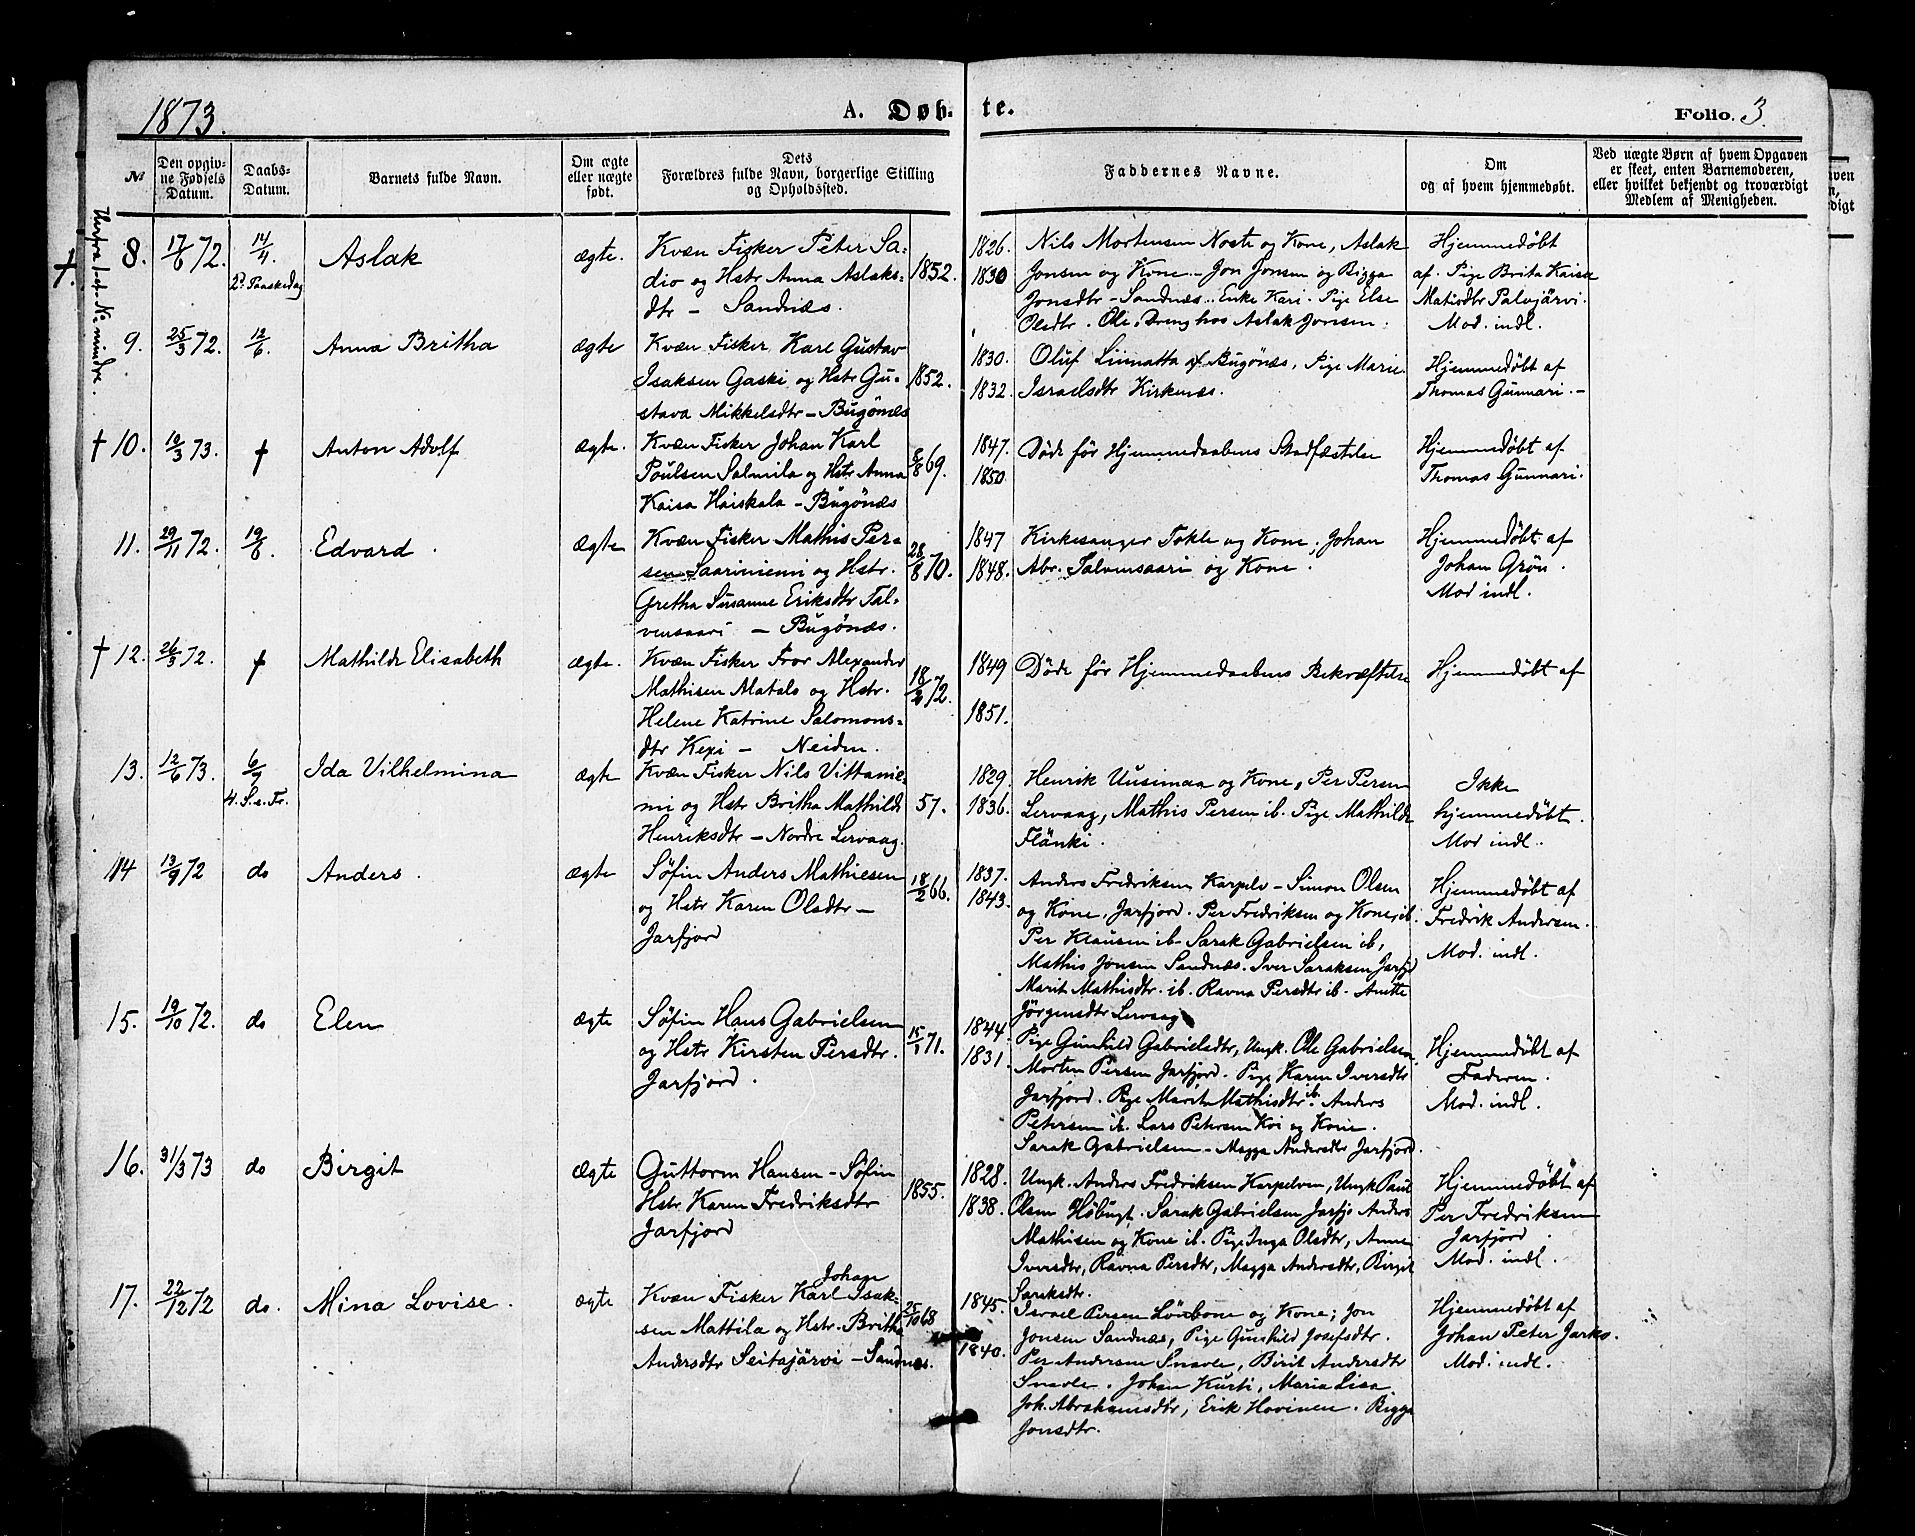 1873.
A. Døb-
te.
Folio. 3.
№
Den opgiv-
ne Fødsels
Datum.
Daabs-
Datum.
Barnets fulde Navn.
Om ægte
eller uægte
født.
Dets
Forældres fulde Navn, borgerlige Stilling
og Opholdssted.
Faddernes Navne.
Om
og af hvem hjemmedøbt.
Ved uægte Børn af hvem Opgaven
er skeet, enten Barnemoderen,
eller hvilket bekjendt og troværdigt
Medlem af Menigheden.
Herfra et № mindre.
† 8.
17/6 72.
14/4.
2d Paaskedag
Aslak
ægte.
Kvæn Fisker Peter Sa-
dio og Hstr Anna Aslaks-
dtr – Sandnæs.
1852.
1826.
1830
Nils Mortensen Noste og Kone, Aslak
Jonsen og Kone – Jon Jonsen og Bigga
Jonsdtr – Sandnæs. Enke Kari. Pige Else
Olsdtr. Ole, Dreng hos Aslak Jonsen.
Hjemmedøbt
af. Pige Brita Kaisa
Matisdtr Palojärvi.
Mod. indl.
9.
25/3 72.
12/6.
Anna Britha
ægte
Kvæn Fisker Karl Gustav
Isaksen Gaski og Hstr Gu-
stava Mikkelsdtr – Bugönæs
1852.
1830.
1832.
Oluf Liimatta af Bugönæs, Pige Marie
Israelsdtr Kirkenæs.
Hjemmedøbt af
Thomas Gunnari. –
† 10.
10/3 73.
†
Anton Adolf
ægte.
Kvæn Fisker Johan Karl
Poulsen Salmila og Hstr Anna
Kaisa Haiskala – Bugönæs
8/8 69.
1847.
1850.
Døde før Hjemmedaabens Stadfæstelse
Hjemmedøbt af
Thomas Gunnari.
11.
29/11 72.
19/6.
Edvard.
ægte
Kvæn Fisker Mathis Per-
sen Saariniemi og Hstr.
Gretha Susanne Eriksdtr Tal-
vensaari – Bugönæs.
28/8 70.
1847
1848.
Kirkesanger Tokle og Kone, Johan
Abr. Talvensaari og Kone.
Hjemmedøbt af
Johan Grön.
Mod indl.
† 12.
26/3 72.
†
Mathilde Elisabeth
ægte.
Kvæn Fisker Fror Alexander
Mathisen Matals og Hstr.
Helene Katrine Salomons-
dtr Kexi – Neiden.
18/2 72.
1849
1851.
Døde før Hjemmedaabens Bekræftelse
Hjemmedøbt af
13.
12/6 73.
6/7
4. S. e. Tr.
Ida Vilhelmina
ægte
Kvæn Fisker Nils Vittanie-
mi og Hstr Britha Mathilde
Henriksdtr – Nordre Lervaag.
57.
1829.
1836.
Henrik Uusimaa og Kone, Per Persen
Lervaag, Mathis Persen ib. Pige Mathilde
Flänki.
Ikke
hjemmedøbt.
Mod indl.
14
13/9 72
do
Anders.
ægte
Søfin Anders Mathiesen
og Hstr Karen Olsdtr –
Jarfjord
18/2 66.
1837.
1843.
Anders Fredriksen Karpelv – Simon Olsen
og Kone, Jarfjord. Per Fredriksen og Kone, ib.
Per Klausen ib – Sarak Gabrielsen ib,
Mathis Jonsen Sandnæs. Iver Saraksen Jarfjd
Marit Mathisdtr. ib. Ravna Persdtr ib – Anitte
Jörgensdtr Lervaag
Hjemmedøbt af
Fredrik Andersen.
Mod. indl.
15.
19/10 72.
do
Elen
ægte
Søfin Hans Gabrielsen
og Hstr Kirsten Persdtr.
Jarfjord.
15/1 71.
1844.
1831.
Pige Gunhild Gabrielsdtr, Ungk. Ole Gabrielsen
Morten Persen Jarfjord. Pige Karen Iversdtr
Jarfjord. Pige Marit Mathisdtr ib. Anders
Petersen ib. Lars Petersen Koi og Kone.
Sarak Gabrielsen – Magga Andersdtr Jarfjord.
Hjemmedøbt af
Faderen.
Mod. indl.
16.
31/3 73
do
Birgit
ægte
Guttorm Hansen – Søfin
Hstr Karen Fredriksdtr
Jarfjord
1855.
1828.
1838.
Ungk. Anders Fredriksen Karpelven, Ungk Paul
Olsen Höbugt. Sarak Gabrielsen Jarfjo Anders
Mathisen og Kone ib. Pige Inga Olsdtr, Anne
Iversdtr, Ravna Persdtr, Magga Andersdtr, Birgit
Saraksdtr.
Hjemmedøbt af
Per Fredriksen
Jarfjord.
Mod. indl.
17.
22/12 72
do.
Mina Lovise.
ægte
Johan
Kvæn Fisker Karl Isak-
sen Mattila og Hstr. Britha
Andersdtr Seitajärvi – Sandnæs.
25/10 68
1845.
1840.
Israel Persen Lönbom og Kone; Jon
Jonsen Sandnæs, Pige Gunhild Josefsdtr.
Per Andersen Snavle, Birit Andersdtr
Snavle. Johan Kurti, Maria Lisa
Joh. Abrahamsdtr, Erik Hovinen. Bigga
Jonsdtr.
Hjemmedøbt af
Johan Peter Jarko.
Mod. indl.